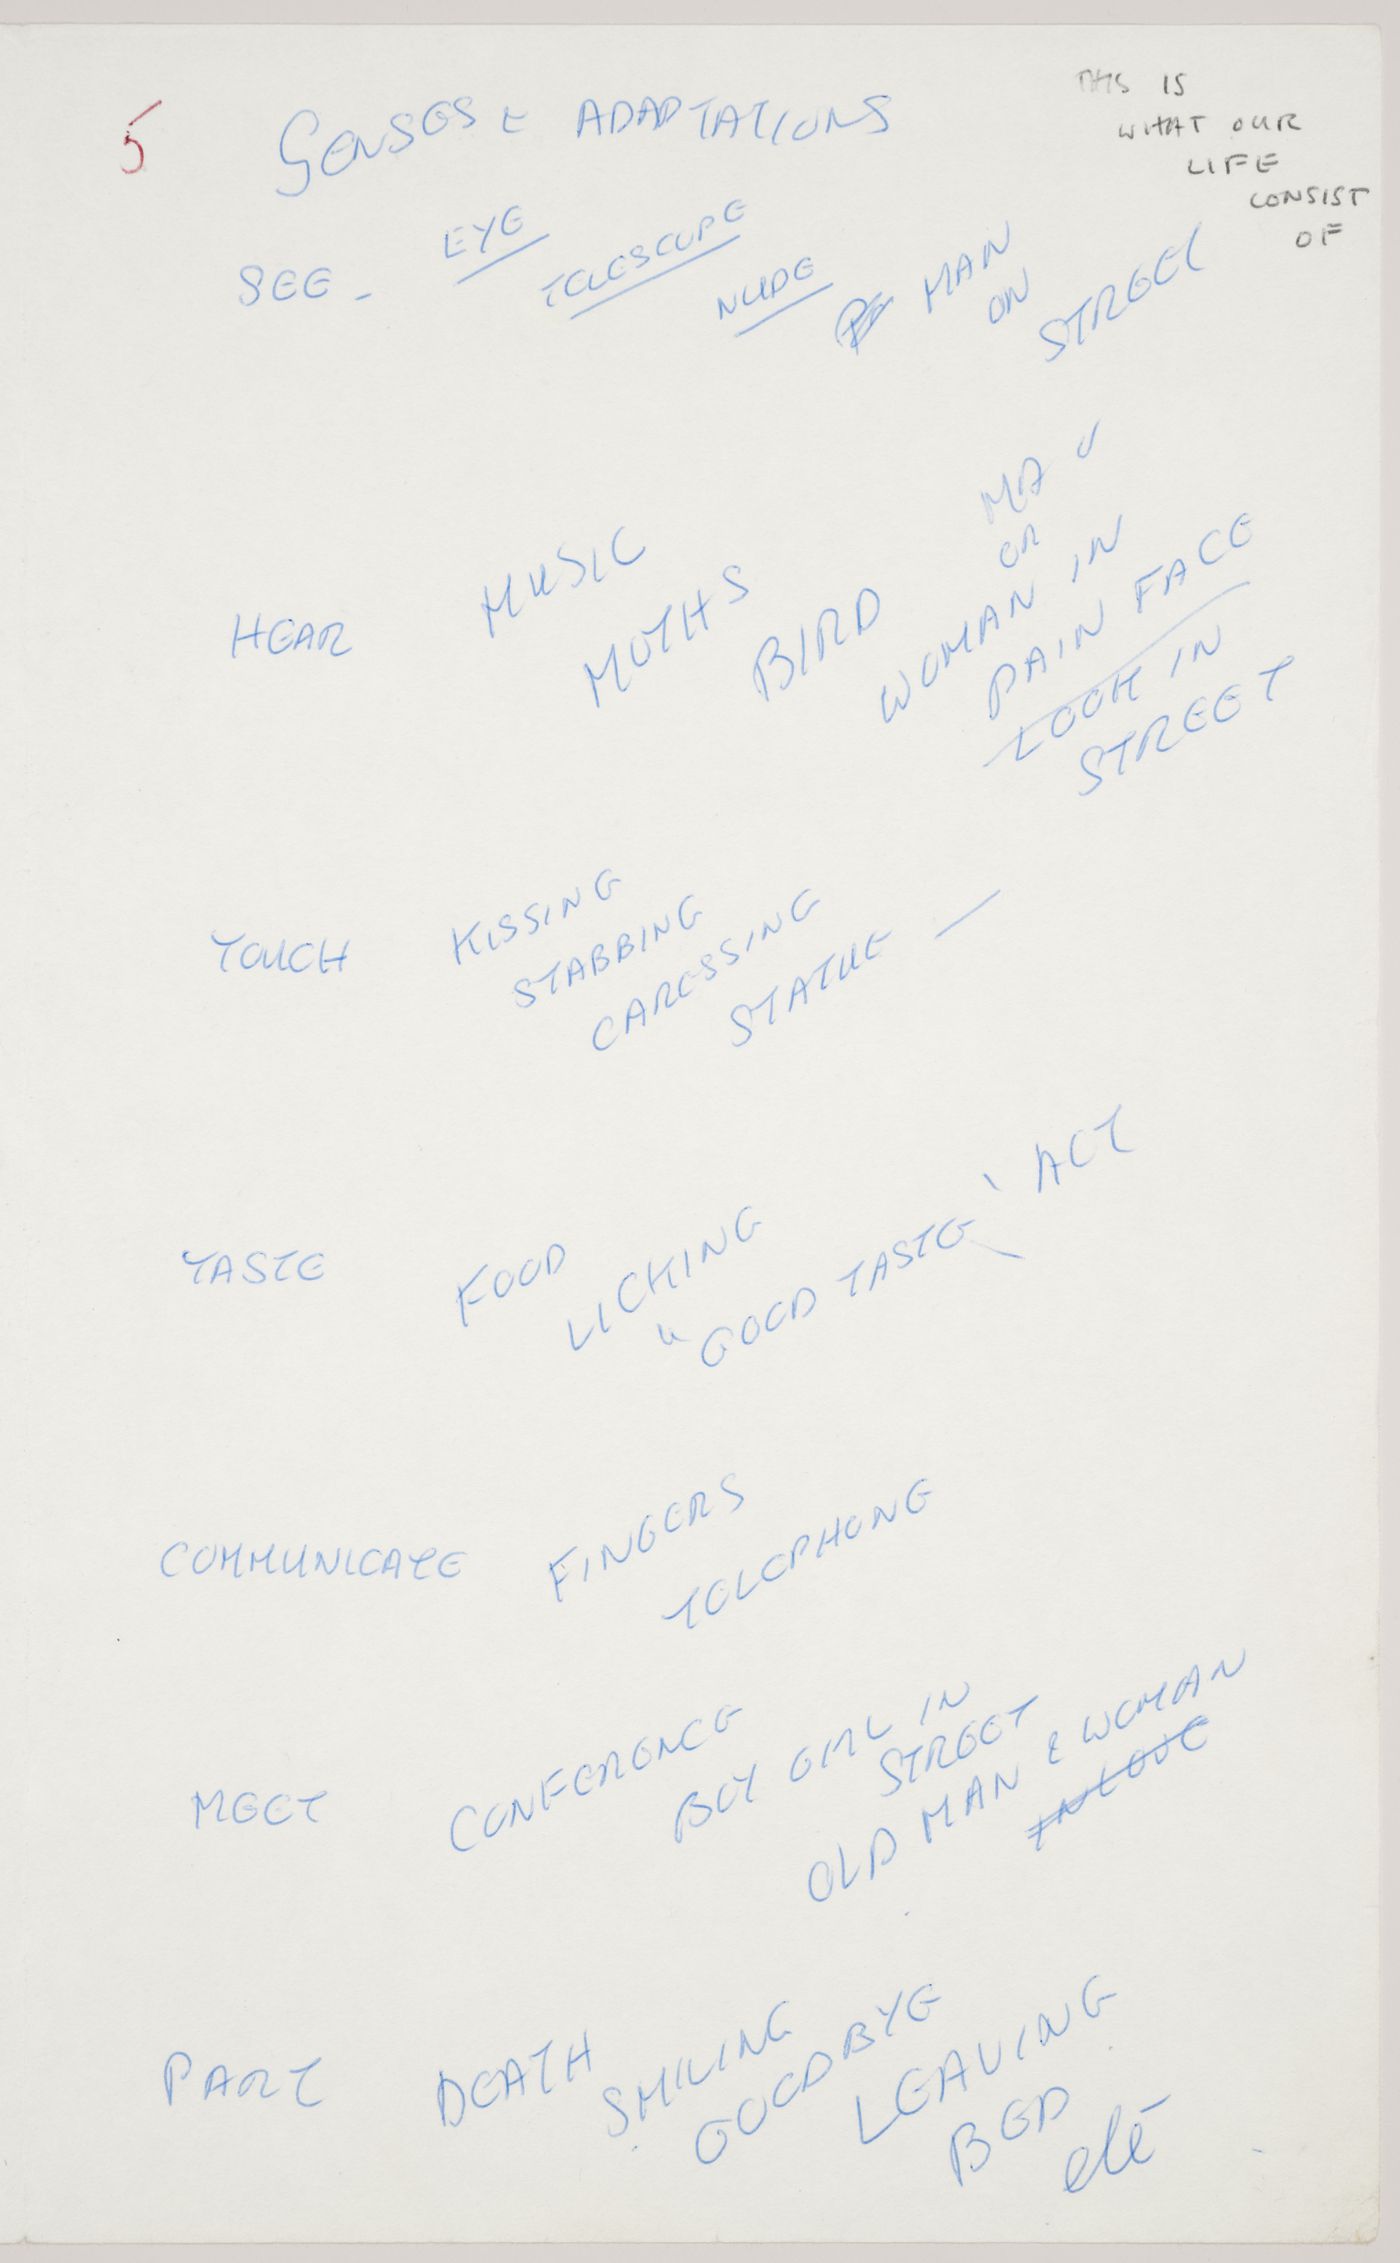 5
SENSES & ADAPTATIONS
THIS IS
WHAT OUR
LIFE
CONSIST
OF
SEE -
EYE
TELESCOPE
NUDE
MAN
ON
STREET
HEAR
MUSIC
MOTHS
BIRD
OR
WOMAN IN
PAIN FACE
LOOK IN
STREET
TOUCH
KISSING
STABBING
CARESSING
STATUE —
TASTE
FOOD
LICKING
"GOOD TASTE" ACT
COMMUNICATE
FINGERS
TELEPHONE
MEET
CONFERENCE
BOY GIRL IN
STREET
OLD MAN & WOMAN
IN LOVE
PART
DEATH
SMILING
GOODBYE
LEAVING
BED